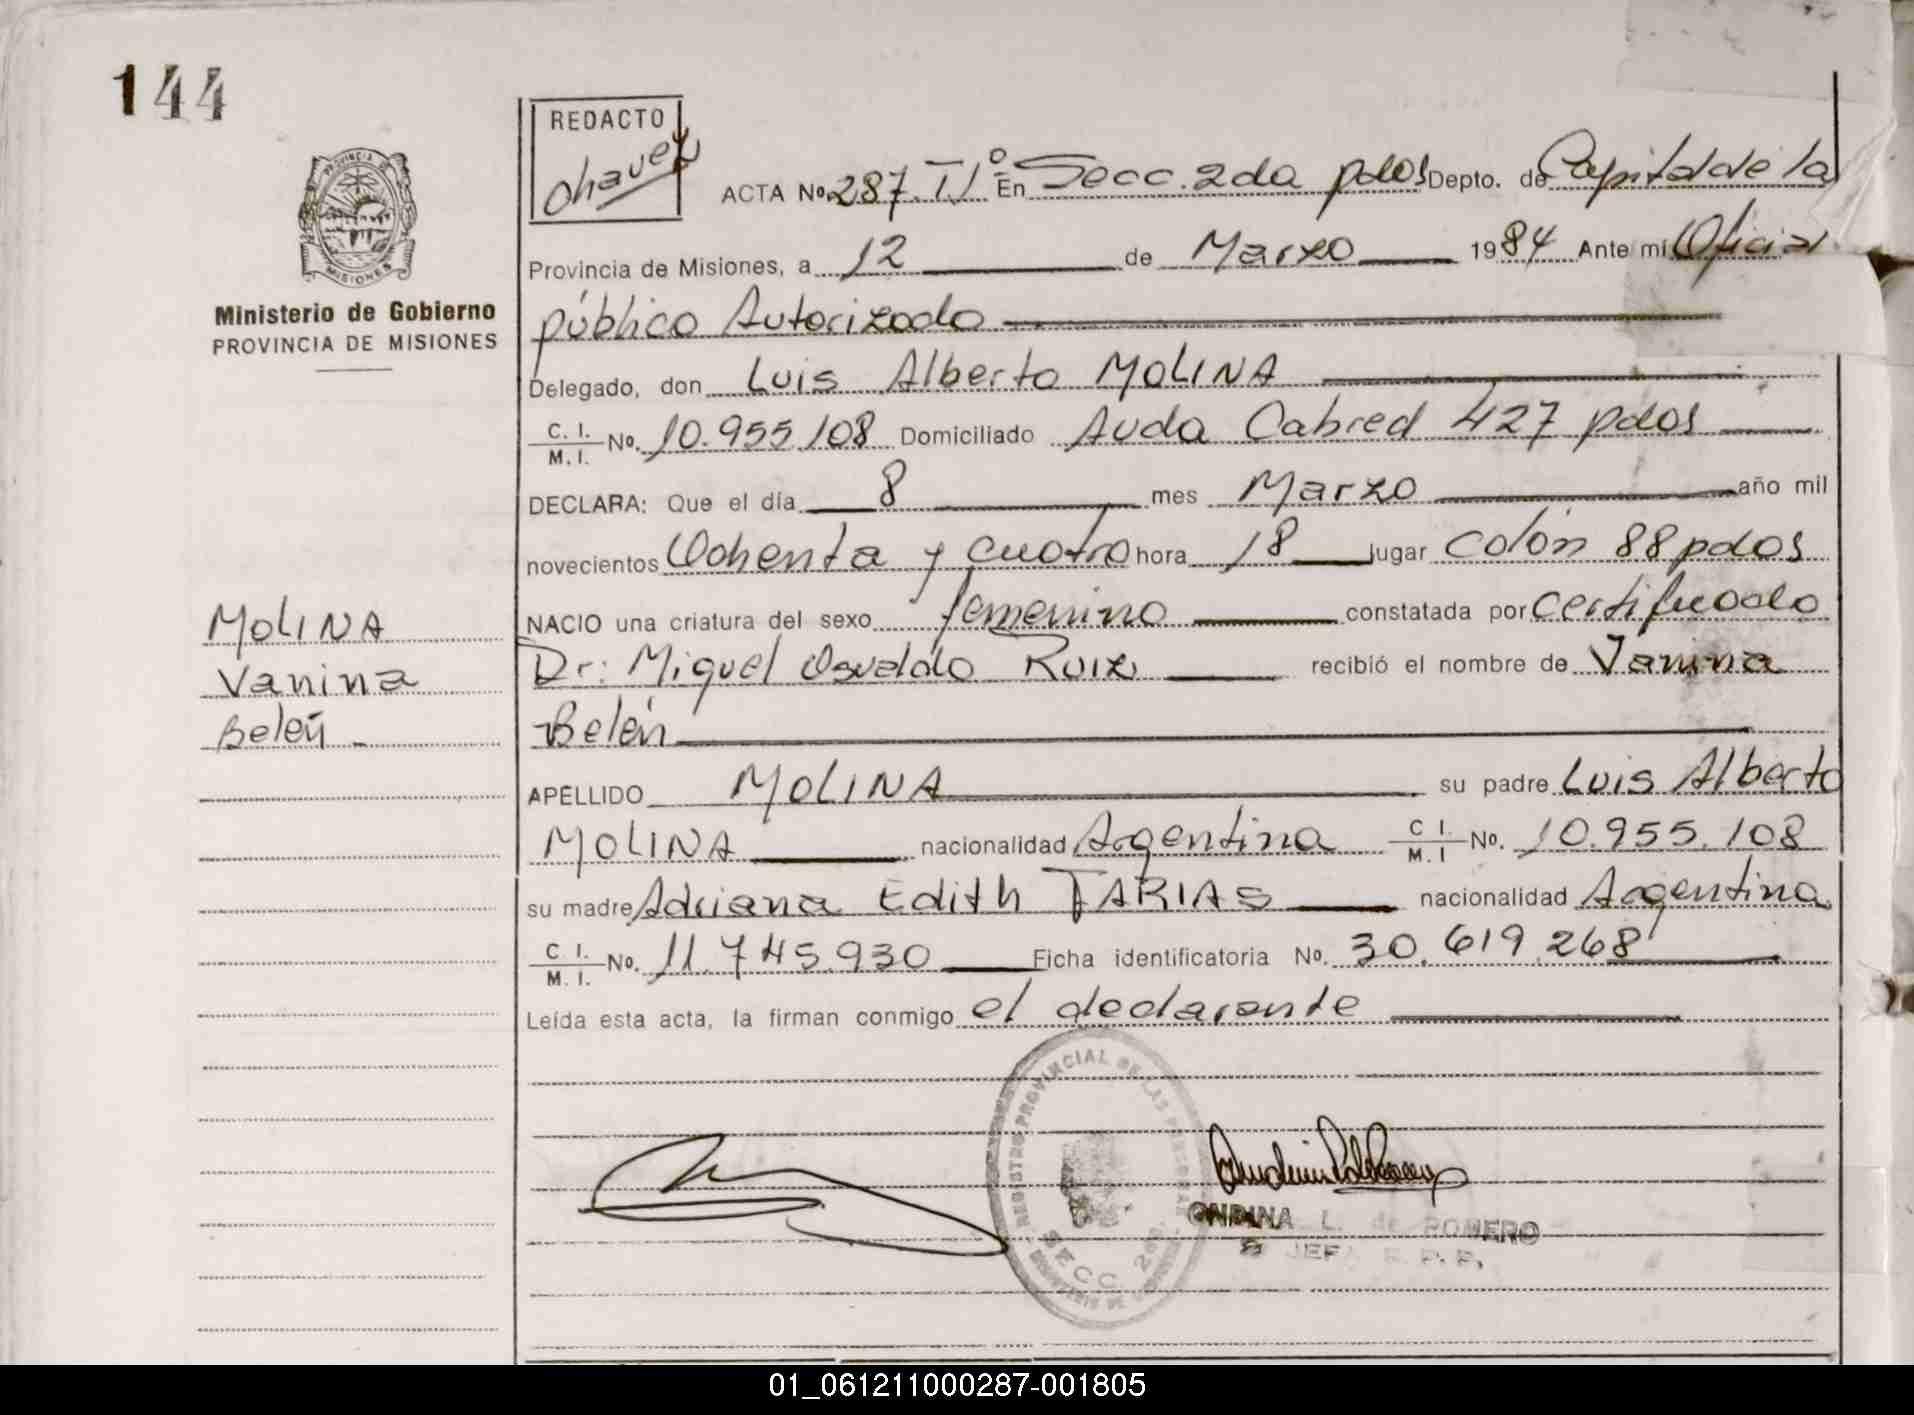 144
REDACTO
Chavez
ACTA No. 287. Tº Iº En Secc. 2da pdas Depto. de Capital de la
Provincia de Misiones, a 12 de Marzo 1984 Ante mi Oficial
público Autorizado
Delegado, don Luis Alberto MOLINA
C. I. M. I. No. 10.955.108 Domiciliado Avda Cabred 427 pdas
DECLARA: Que el día 8 mes Marzo año mil
novecientos Ochenta y cuatro hora 18 lugar Colón 88 pdas
NACIO una criatura del sexo femenino constatada por certificado
Dr: Miguel Osvaldo Ruiz recibió el nombre de Vanina
Belén
APELLIDO MOLINA su padre Luis Alberto
MOLINA nacionalidad Argentina C I. M. I No. 10.955.108
su madre Adriana Edith FARIAS nacionalidad Argentina
C I. M. I. No. 11.745.930 Ficha identificatoria No. 30.619.268
Leída esta acta, la firman conmigo el declarante
PROVINCIA DE MISIONES
Ministerio de Gobierno
PROVINCIA DE MISIONES
MOLINA
Vanina
Belén
REGISTRO PROVINCIAL DE LAS PERSONAS
SECC. 2da.
ONDINA L. de ROMERO
JEFA R. P. P.
01_061211000287-001805